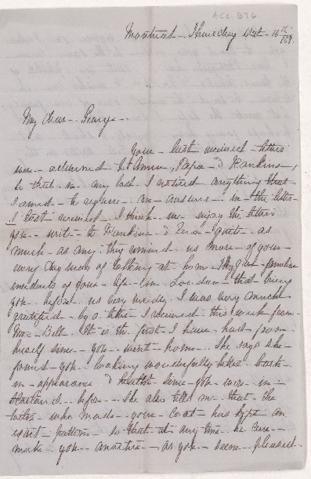 Acc. 876
Montreal - Thursday Oct - 16th
My dear George -
Your last received letter
was - acknowledged between, Papa & Frankin
so that in my last I noticed anything that
I seemed - to require - an answer - in - the letter
I last received. I think - we enjoy the letters
you - write to Frankin & Eva quite - as
much - as any - they remind us more of your
way of talking at home &
incidents of your - life - in London - that bring
you before us very nicely. I was very much
gratified - by a letter I received this week from
Mrs - Bell. It is the first I have had from
since - you - went home. She says she
found you looking wonderfully better both
in - appearance & health since you were in
Scotland before - She also tells me that the
tailor - who made - your Coat has kept an
exact pattern so that at any time he can
make you another - as you seem pleased